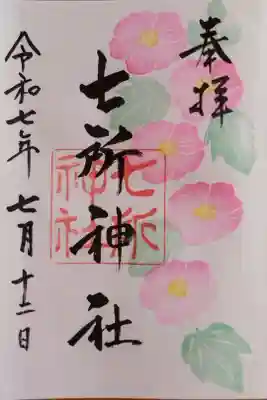 奉拝
七所神社
七所
神社
令和七年七月十二日